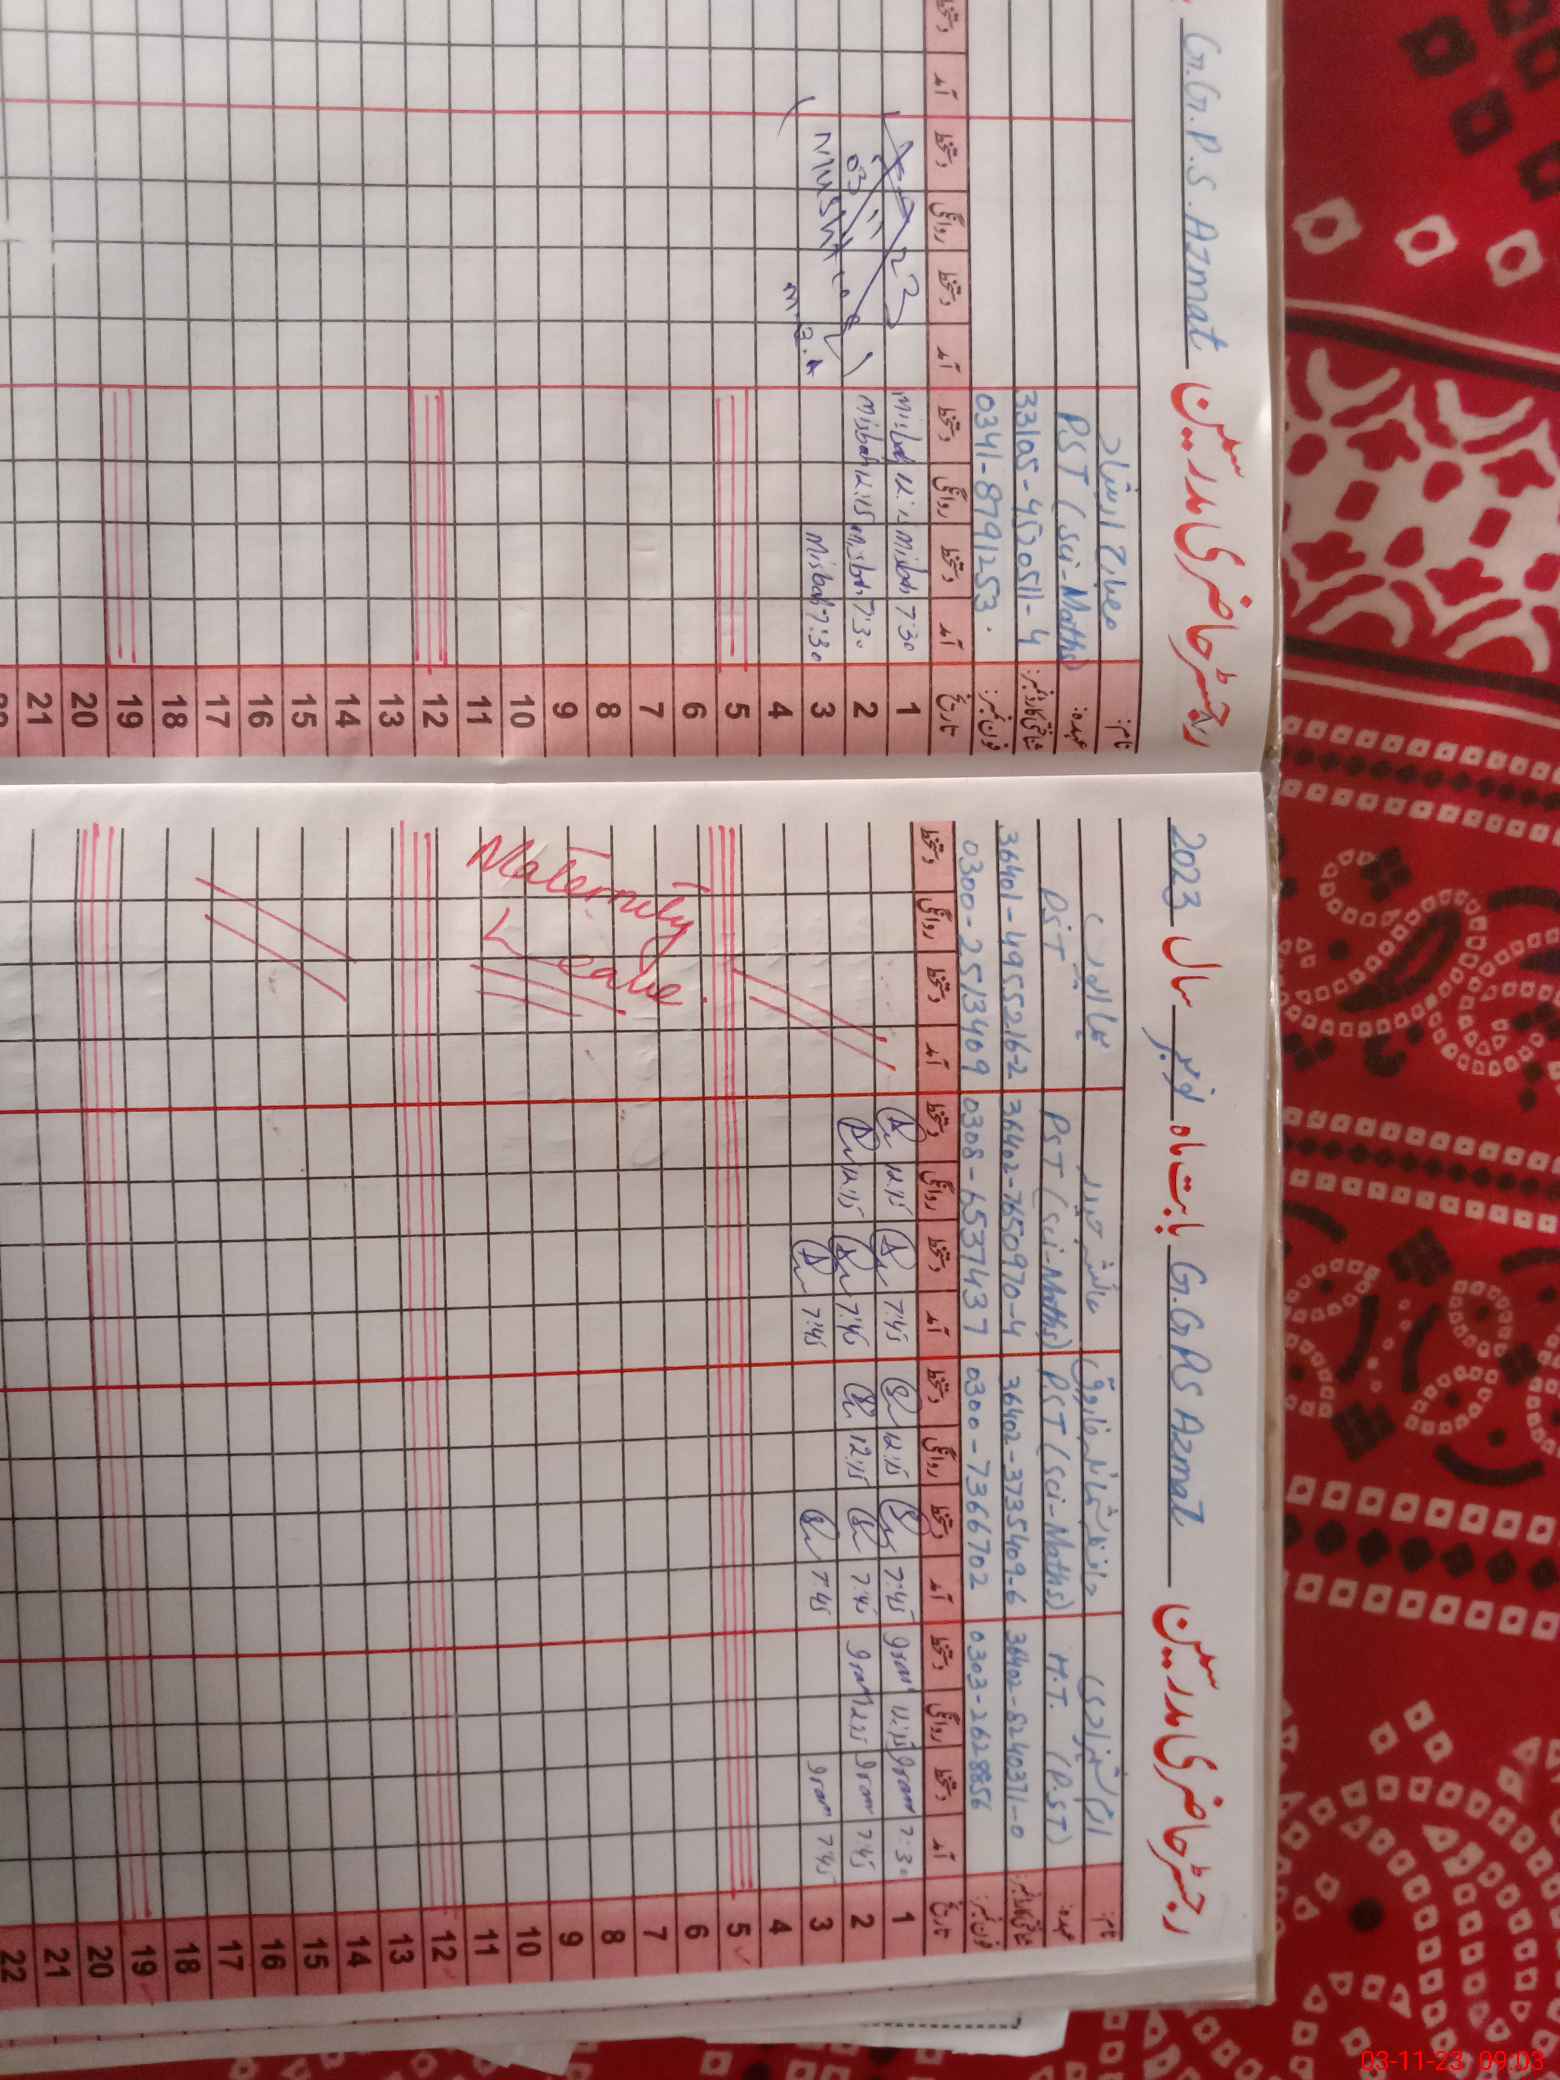 رجسٹر حاضری مدرسین G.G.PS Azmat بابت ماہ نومبر سال 2023
نام:
عہدہ: H.T. (P.ST) PST (Sci-Maths) PST (Sci-Maths) PST
شناختی کارڈ نمبر: 36402-8240371-0 36402-3735409-6 36402-7650970-4 36401-4955216-2
فون نمبر: 0303-2628856 0300-7366702 0308-6537437 0300-2513409
تاریخ آمد دستخط روانگی دستخط آمد دستخط روانگی دستخط آمد دستخط روانگی دستخط آمد دستخط روانگی دستخط
1 7:30 12:15 7:45 12:15 7:45 12:15
2 7:45 7:45 12:15 7:45 12:15
3 7:45 7:45 7:45
4
5
6
7
8
9
10
11
12
13
14
15
16
17
18
19
20
21
22
Maternity
Leave.
رجسٹر حاضری مدرسین G.G.P.S. Azmat
نام: مصباح ارشاد
عہدہ: PST (Sci-Maths)
شناختی کارڈ نمبر: 33105-4520511-4
فون نمبر: 0341-8791253.
تاریخ آمد دستخط روانگی دستخط آمد دستخط روانگی دستخط آمد دستخط
1 7:30 Misbah 12:15 Misbah
2 7:30 Misbah 12:15 Misbah
3 7:30 Misbah
4
5
6
7
8
9
10
11
12
13
14
15
16
17
18
19
20
21
03-11-23 09:03